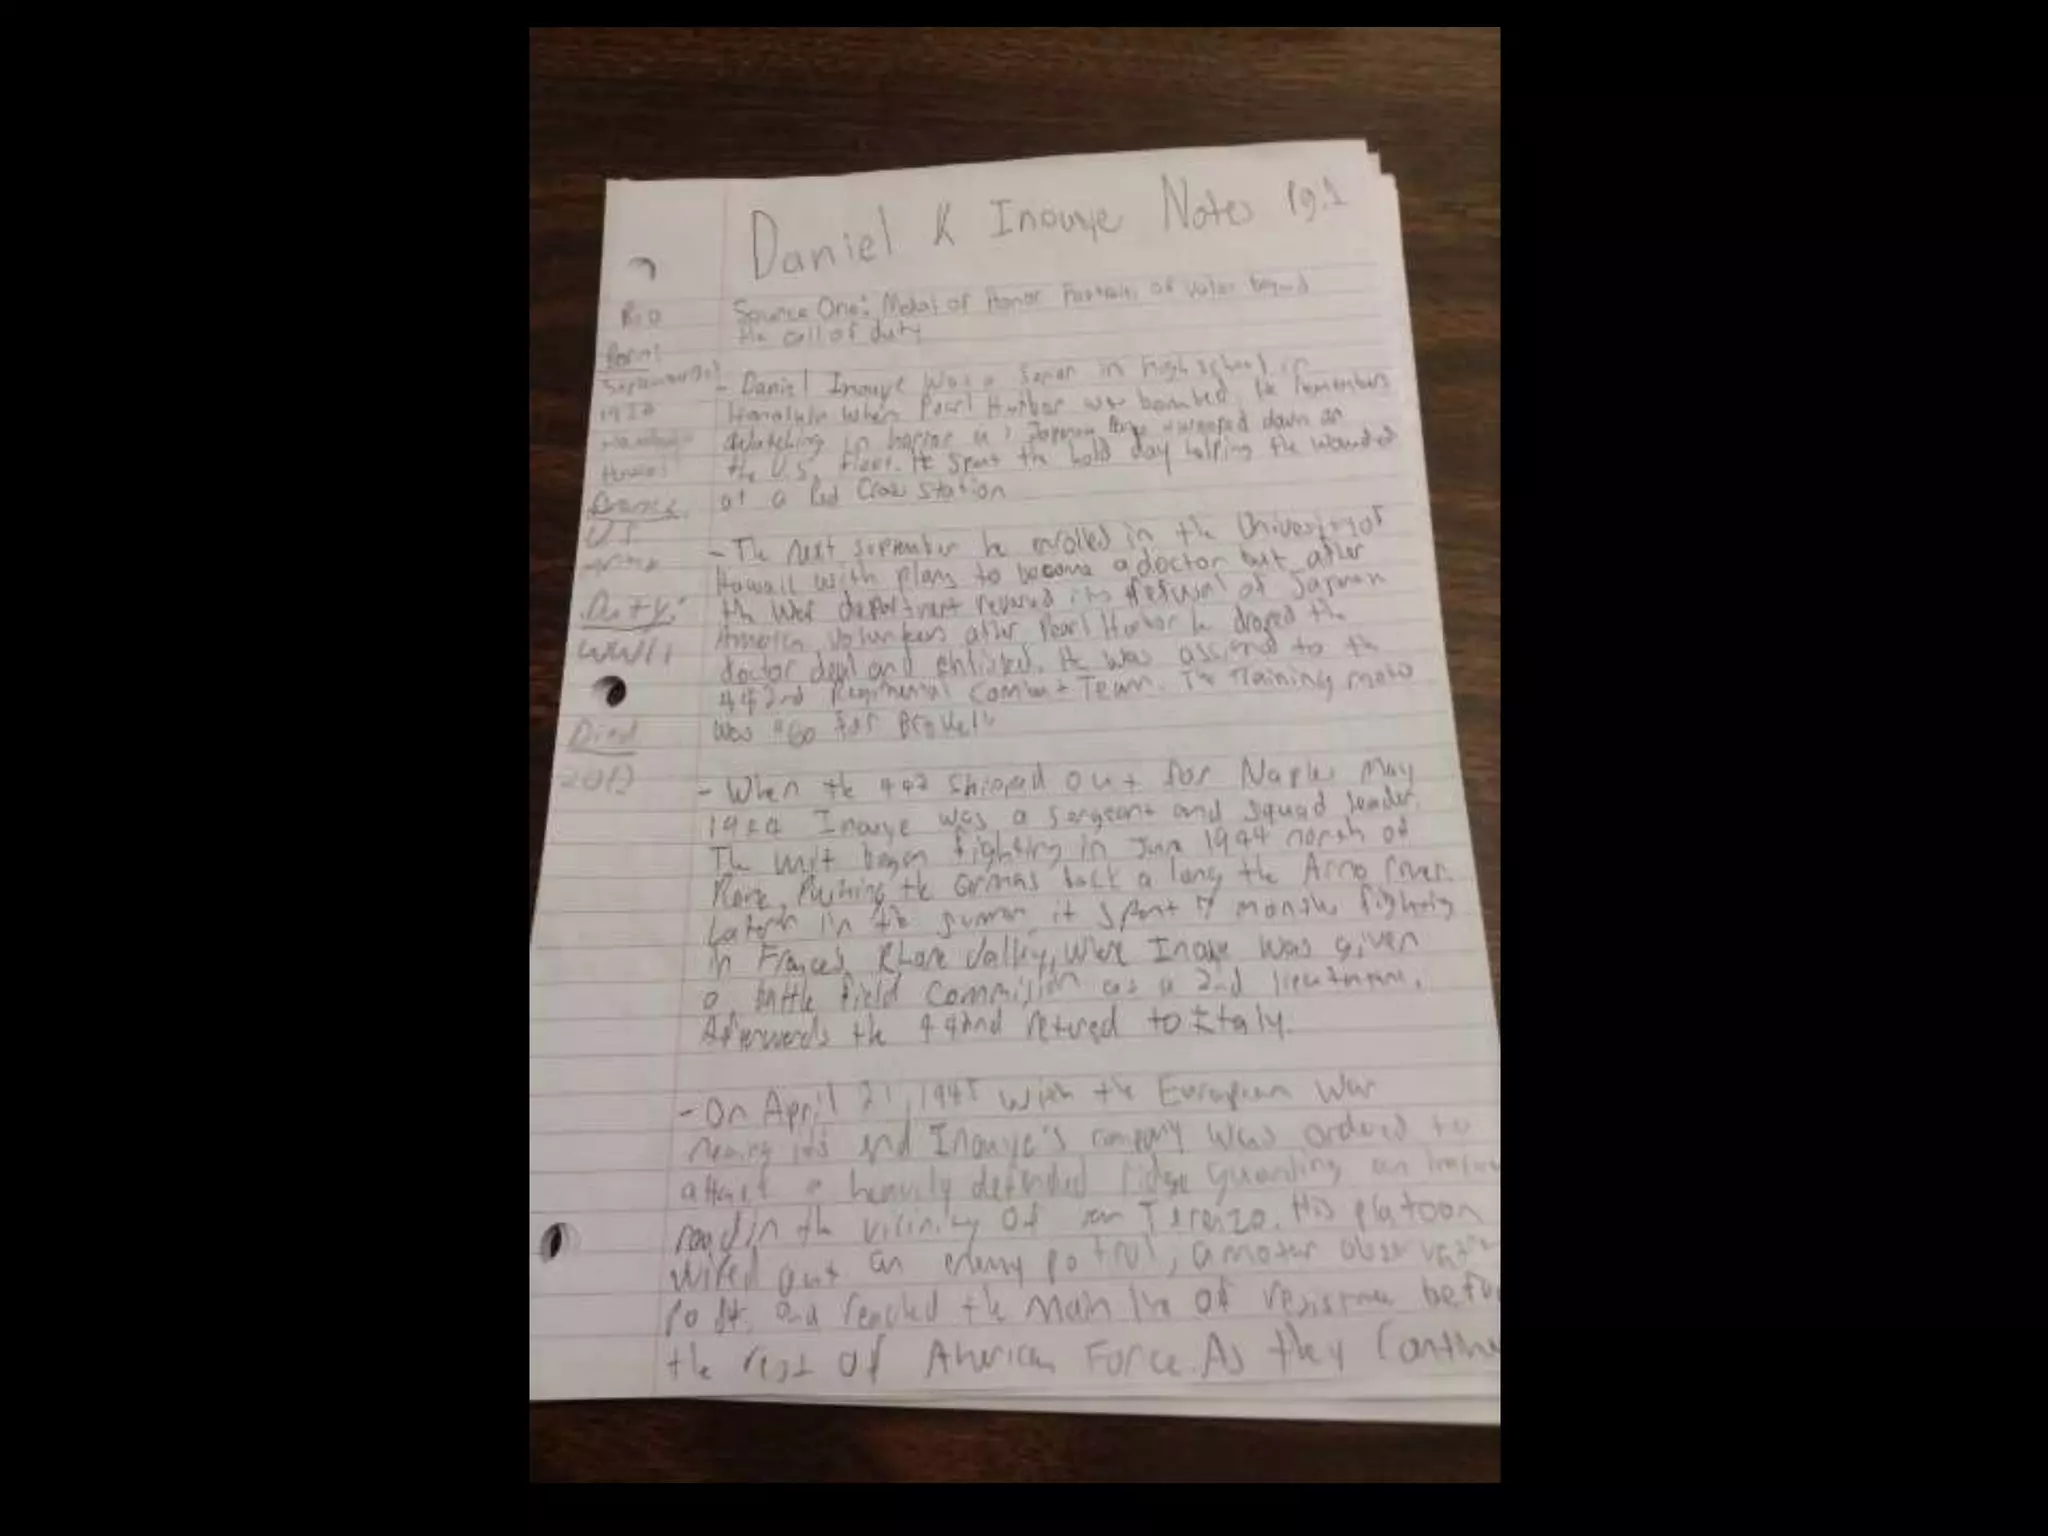 Daniel K Inouye Notes pg.1
Bio
Born:
September
Hawaii
Branch
U.S
Army
Duty:
WWII
Died
2012
Source One: Medal of Honor Portraits of Valor beyond
the call of duty
- Daniel Inouye was a in high school in
Honolulu when Pearl Harbor was bombed. he remembers
watching in horror as down on
the U.S. fleet. He spent the hold day helping the wounded
at a Red Cross station
- The next september he enrolled in the University of
Hawaii with plans to become a doctor but after
the War department its refusal of Japanese
America after Pearl Harbor he droped the
doctor deal and enlisted. He was to the
442nd Regimental Combat Team. The Training moto
was "Go for Broke!"
- When the 442 shipped out for Naples May
1944 Inouye was a sergeant and squad leader.
The unit began fighting in June 1944 north of
Rome, Pushing the back a long the Arno river.
in the it spent months fighting
in Rhone Valley, where was given
a battle field Commision as a 2nd
Afterwards the 442nd to Italy.
- On April 21, 1945 with the European War
end Inouye's company was ordered to
attack a heavily defended ridge guarding an
road in the vicinity of san Terenzo. His platoon
wiped out an enemy patrol, a
post, and reached the main line of
the rest of American Force. As they